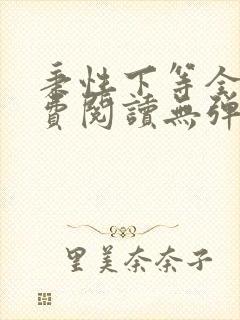 秉性下等全
費閱讀無彈
里美奈奈子